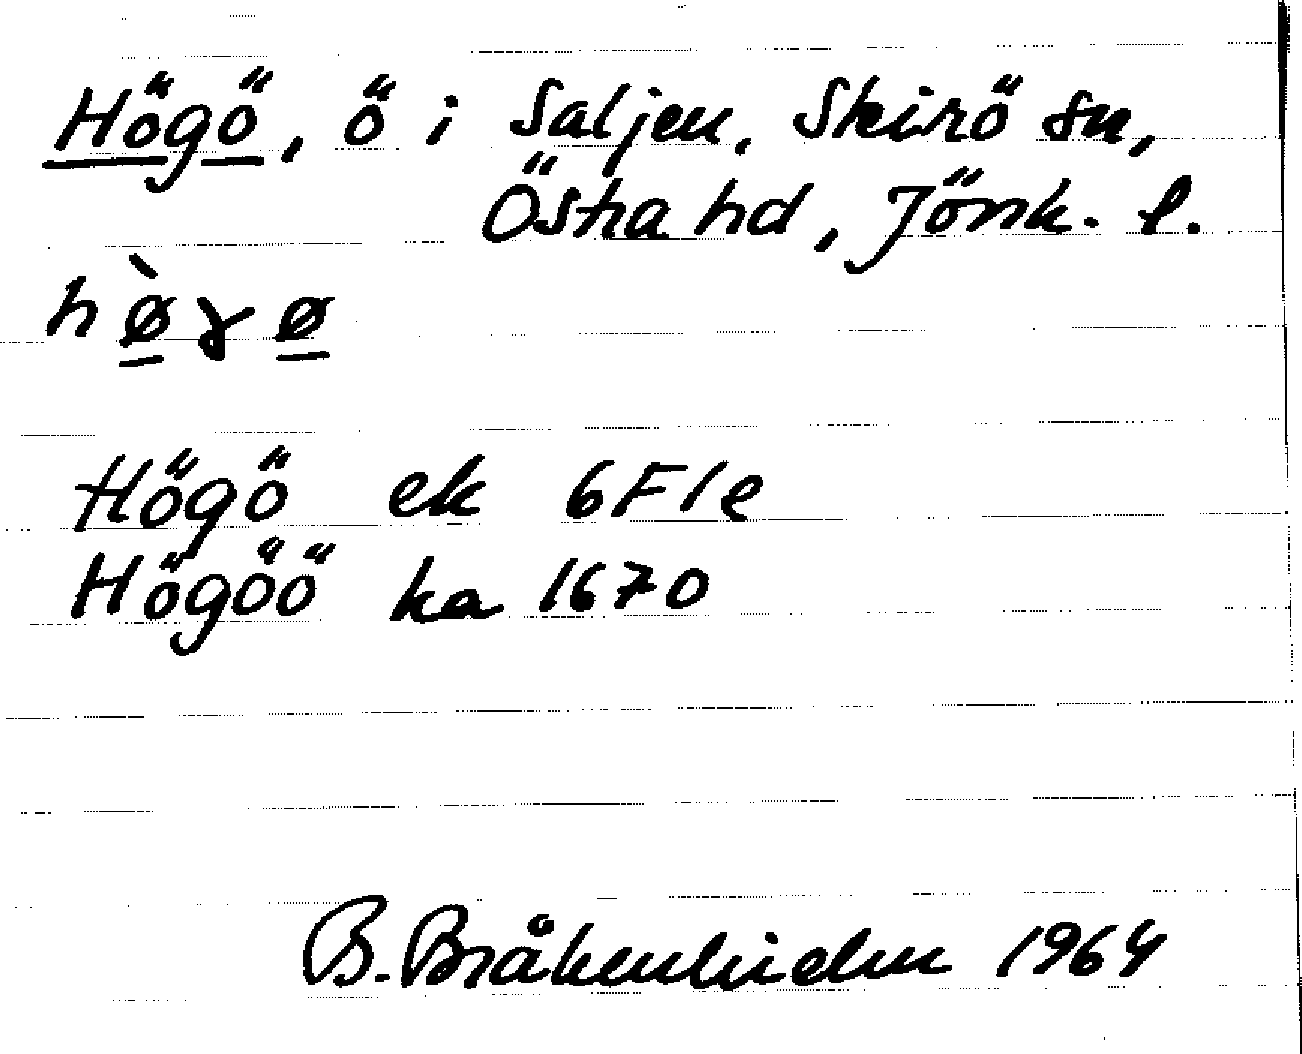 Högö, ö i Saljen, Skirö sn,
Östra hd, Jönk. l.
hø̠̀ɣø̠
Högö ek 6F1e
Högöö ka 1670
B. Bråkenhielm 1964